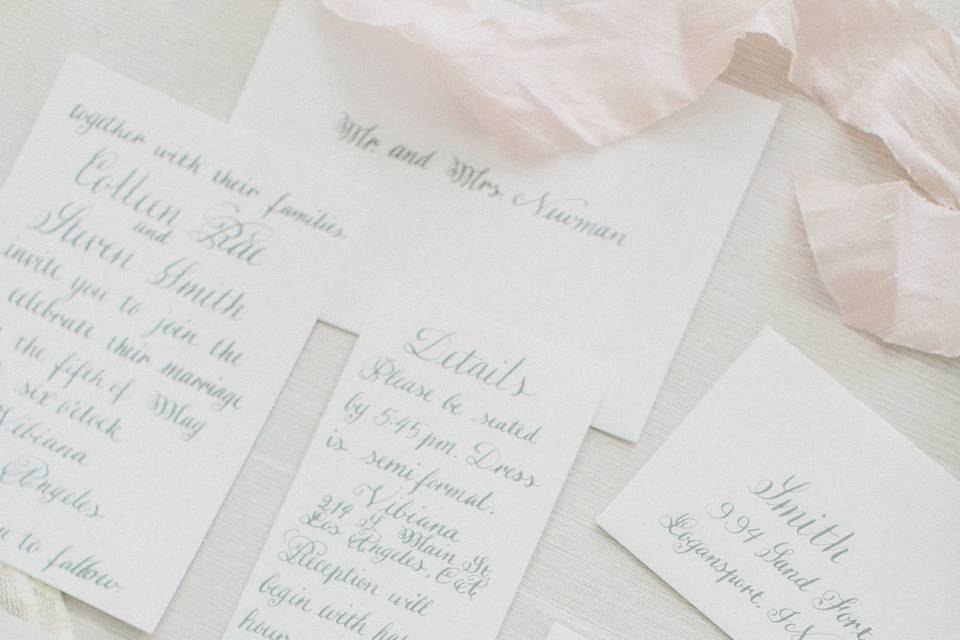 together with their families
Colleen Rae
and
Steven Smith
invite you to join the
celebrate their marriage
the fifth of May
six o'clock
Vibiana
Angeles
to follow.
Mr. and Mrs. Newman
Details
Please be seated
by 5:45 pm. Dress
is semi-formal.
Vibiana
214 S. Main St.
Los Angeles, CA
Reception will
begin with
hour
Smith
994 Sand Fort
Logansport, IN